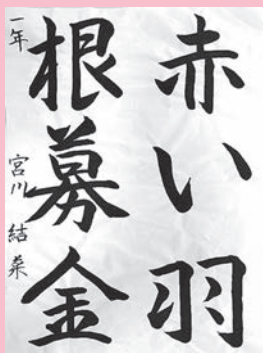 赤い羽
根募金
一年 宮川 結菜